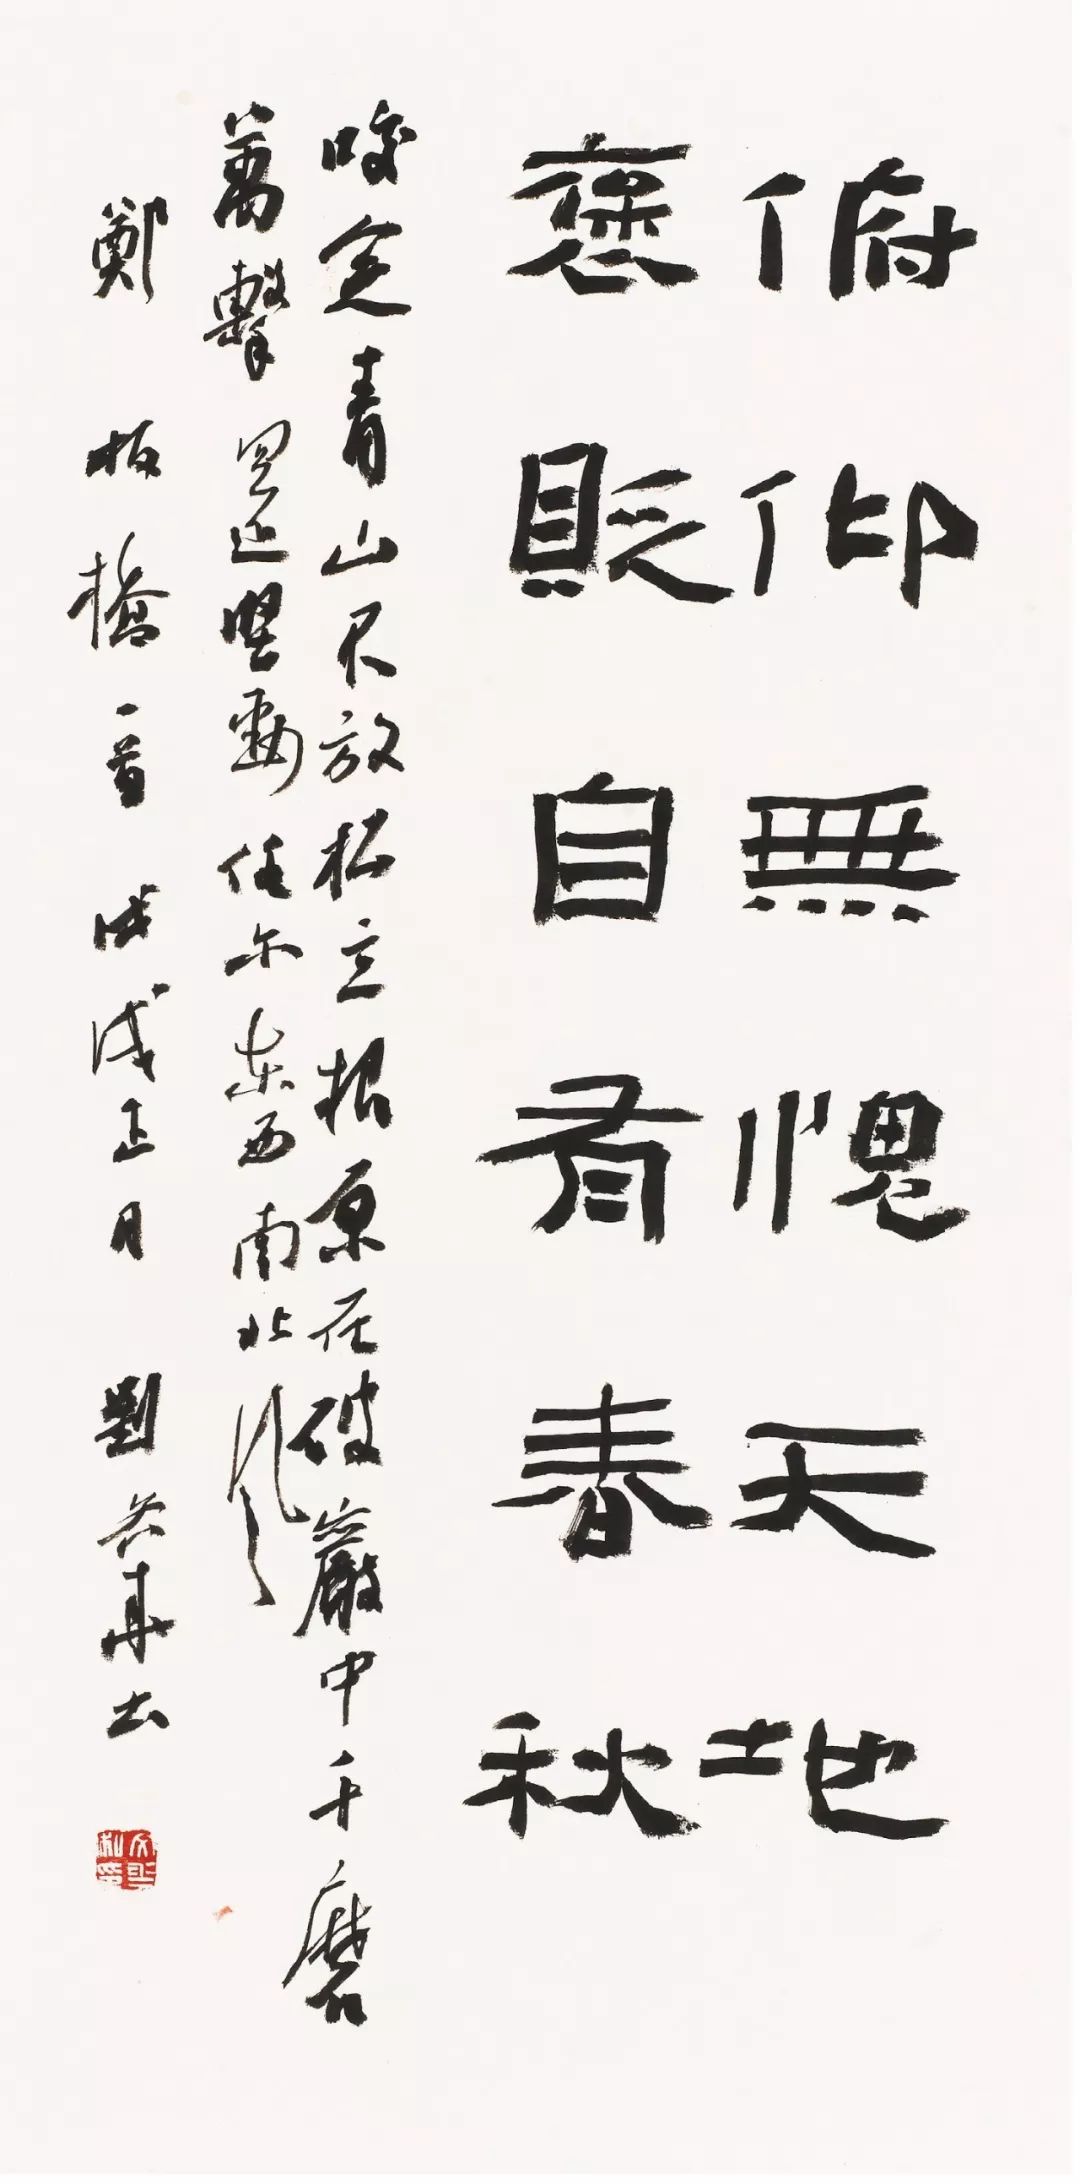 俯仰無愧天地
褒貶自有春秋
咬定青山不放松立根原在破巖中千磨
萬擊還堅勁任尔東西南北風
鄭板橋一首戊戌正月劉文華书